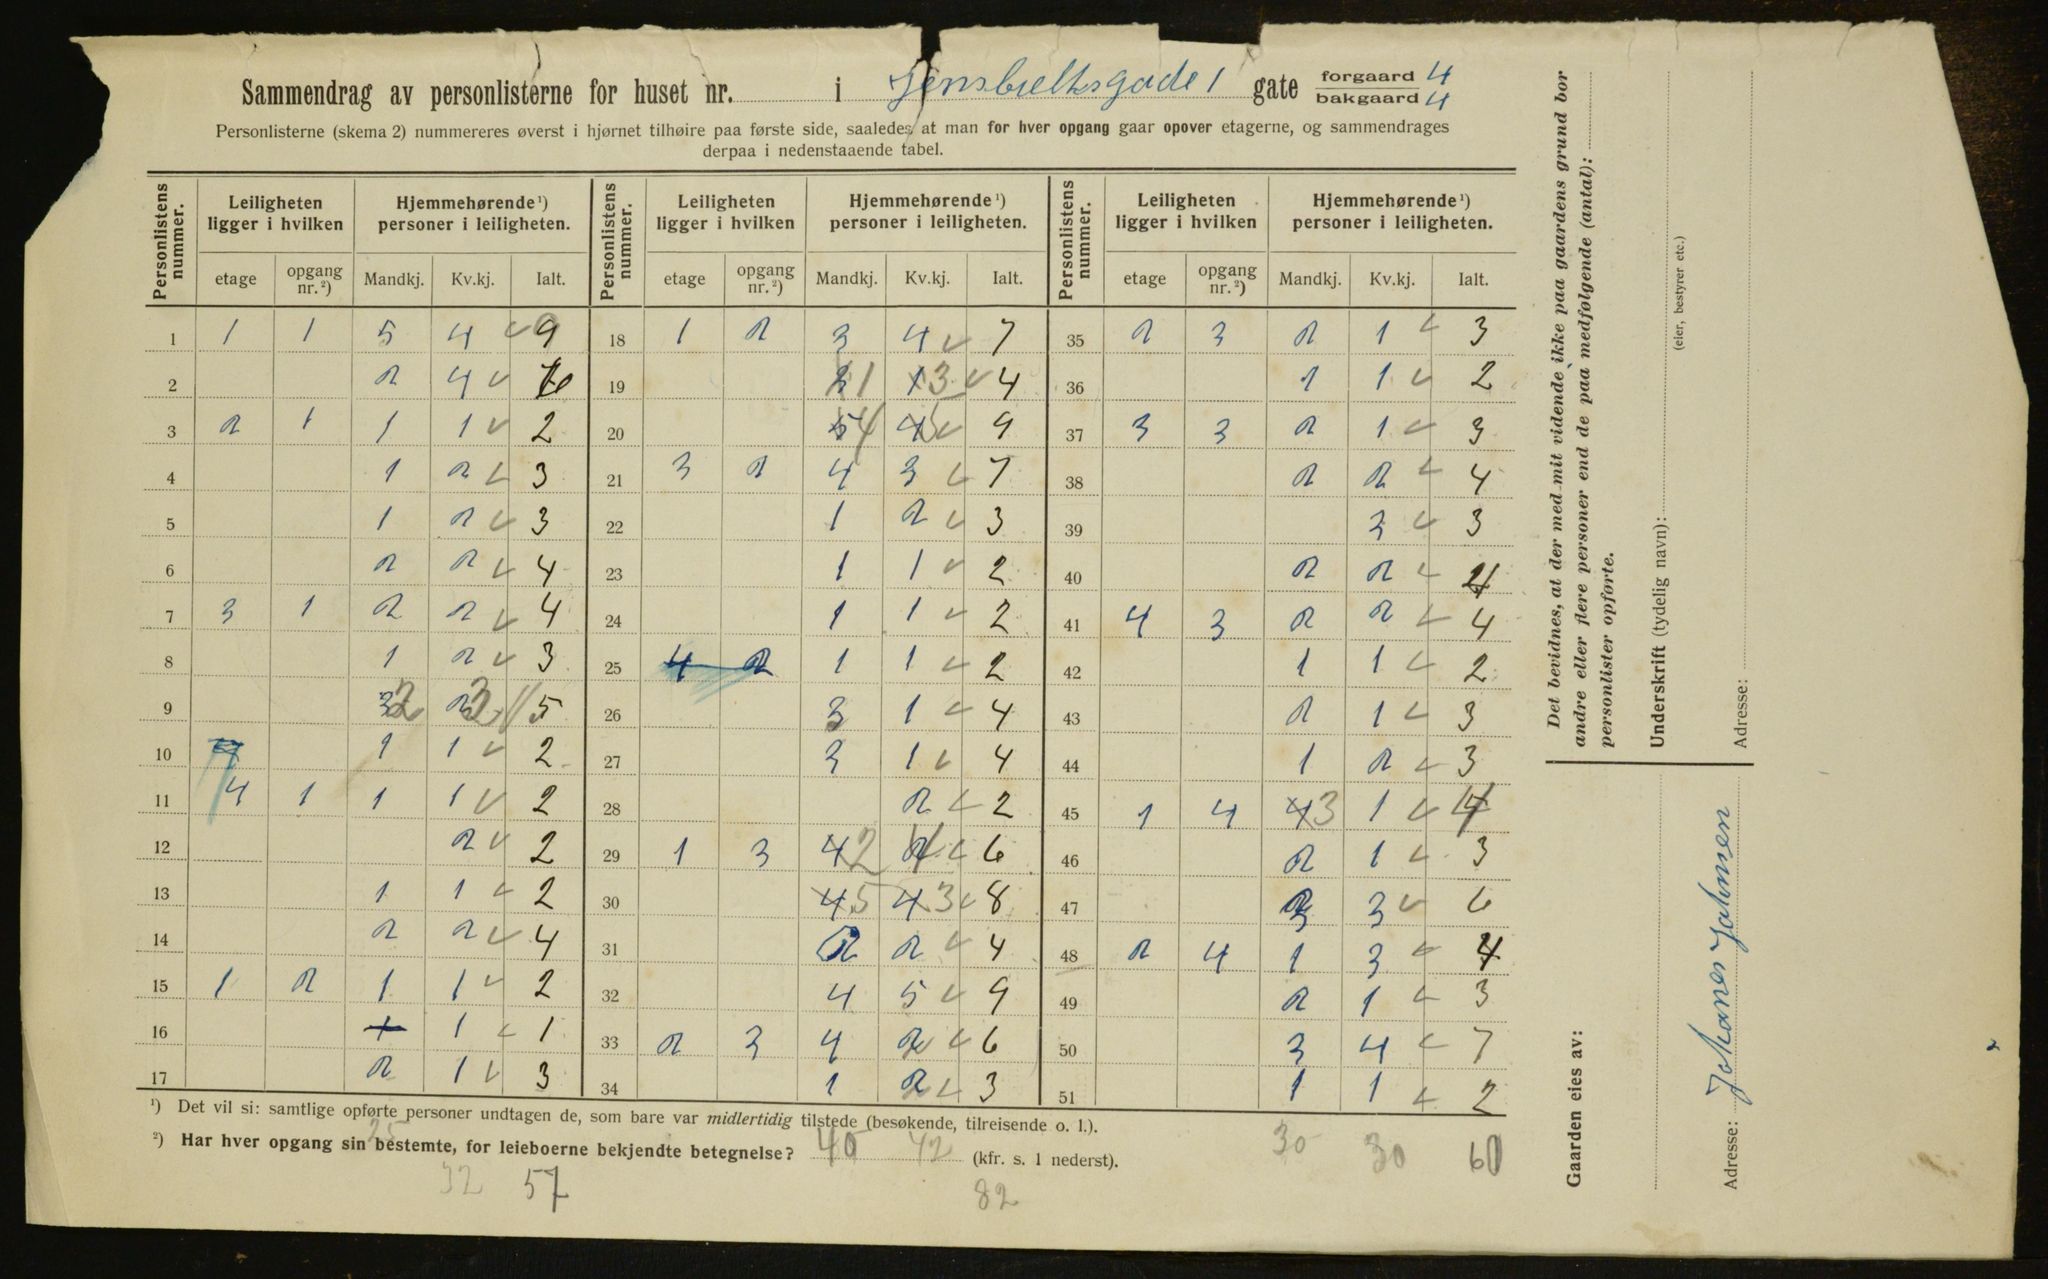 Sammendrag av personlisterne for huset nr. i Jensbjelksgade 1 gate forgaard 4
bakgaard 4
Personlisterne (skema 2) nummereres øverst i hjørnet tilhøire paa første side, saaledes at man for hver opgang gaar opover etagerne, og sammendrages
derpaa i nedenstaaende tabel.
Personlistens nummer. Leiligheten ligger i hvilken Hjemmehørende ¹) personer i leiligheten. Personlistens nummer. Leiligheten ligger i hvilken Hjemmehørende ¹) personer i leiligheten. Personlistens nummer. Leiligheten ligger i hvilken Hjemmehørende ¹) personer i leiligheten.
etage opgang nr. ²) Mandkj. Kv.kj. Ialt. etage opgang nr. ²) Mandkj. Kv.kj. Ialt. etage opgang nr. ²) Mandkj. Kv.kj. Ialt.
1 1 1 5 4 9 18 1 2 3 4 7 35 2 3 2 1 3
2 2 4 6 19 1 3 4 36 1 1 2
3 2 1 1 1 2 20 4 5 9 37 3 3 2 1 3
4 1 2 3 21 3 2 4 3 7 38 2 2 4
5 1 2 3 22 1 2 3 39 3 3
6 2 2 4 23 1 1 2 40 2 2 4
7 3 1 2 2 4 24 1 1 2 41 4 3 2 2 4
8 1 2 3 25 4 2 1 1 2 42 1 1 2
9 3 2 2 3 5 26 3 1 4 43 2 1 3
10 1 1 2 27 3 1 4 44 1 2 3
11 4 1 1 1 2 28 2 2 45 1 4 4 3 1 4
12 2 2 29 1 3 4 2 2 4 6 46 2 1 3
13 1 1 2 30 4 5 4 3 8 47 3 3 6
14 2 2 4 31 2 2 4 48 2 4 1 3 4
15 1 2 1 1 2 32 4 5 9 49 2 1 3
16 1 1 1 33 2 3 4 2 6 50 3 4 7
17 2 1 3 34 1 2 3 51 1 1 2
¹) Det vil si: samtlige opførte personer undtagen de, som bare var midlertidig tilstede (besøkende, tilreisende o. l.).
25
²) Har hver opgang sin bestemte, for leieboerne bekjendte betegnelse? 40 42 (kfr. s. 1 nederst). 30 30 60
32 57 82
Det bevidnes, at der med mit vidende ikke paa gaardens grund bor
andre eller flere personer end de paa medfølgende (antal):
personlister opførte.
Underskrift (tydelig navn):
(eier, bestyrer etc.)
Adresse:
Gaarden eies av:
Johanes Johnsen
Adresse: